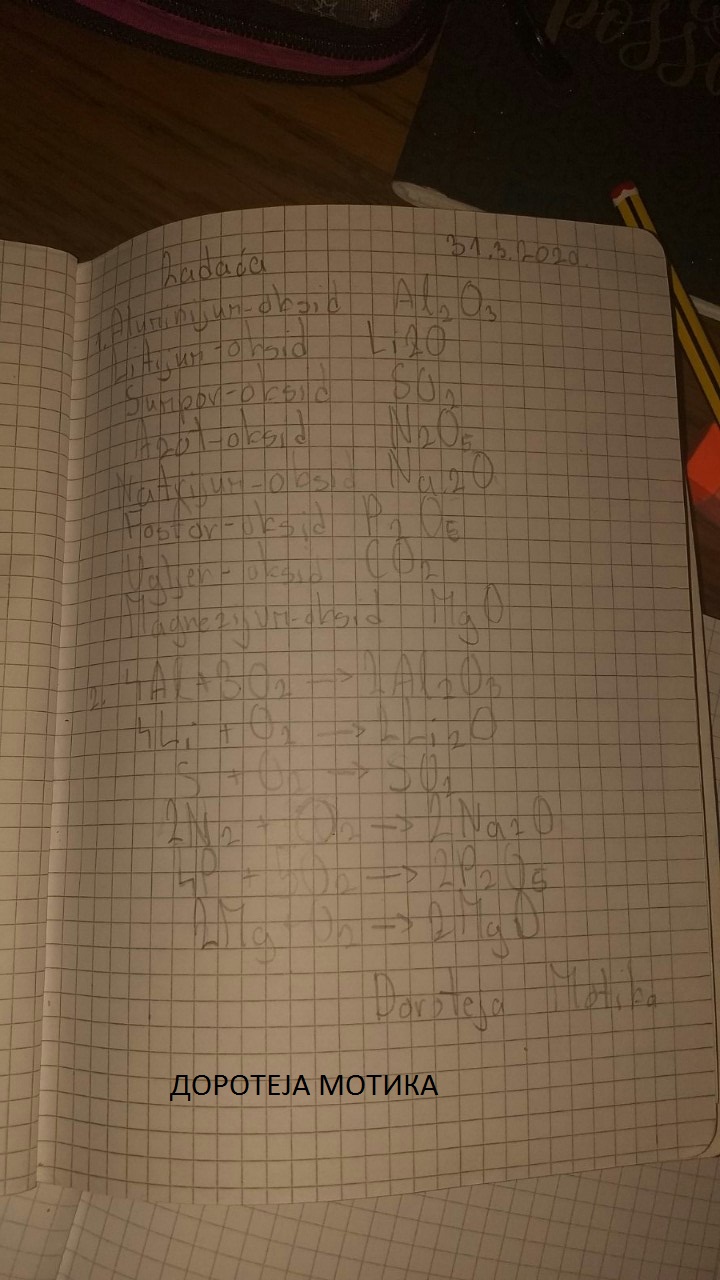 POSSE
Zadaća 31.3.2020.
1. Aluminijum-oksid Al2O3
Litijum-oksid Li2O
Sumpor-oksid SO2
Azot-oksid N2O5
Natrijum-oksid Na2O
Fosfor-oksid P2O5
Ugljen-oksid CO2
Magnezijum-oksid MgO
2. 4Al+3O2 → 2Al2O3
4Li + O2 → 2Li2O
S + O2 → SO2
2N2 + O2 → 2Na2O
4P + 5O2 → 2P2O5
2Mg+O2 → 2MgO
Doroteja Motika
ДОРОТЕЈА МОТИКА